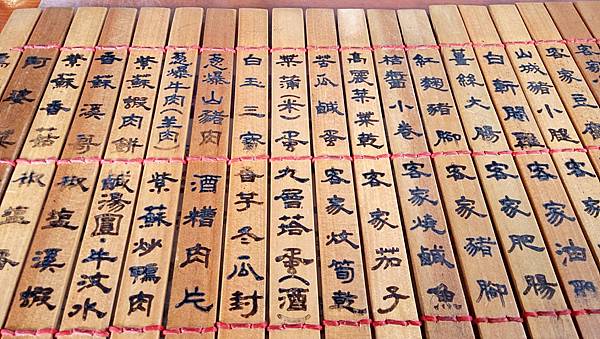 客家豆腐
山城豬小腿
白斬閹雞
薑絲大腸
紅麴豬腳
桔醬小卷
高麗菜菜乾
苦瓜鹹蛋
菜蒲(米)蛋
白玉三寶
蔥爆山豬肉
蔥爆牛肉(羊肉)
紫蘇蝦肉餅
香蘇溪哥
紫蘇香菇
阿婆
客家油
客家肥腸
客家豬腳
客家燒鹹魚
客家茄子
客家炆筍乾
九層塔蛋(酒)
香芋冬瓜封
酒糟肉片
紫蘇炒鴨肉
鹹湯圓·牛汶水
椒塩溪蝦
椒塩香